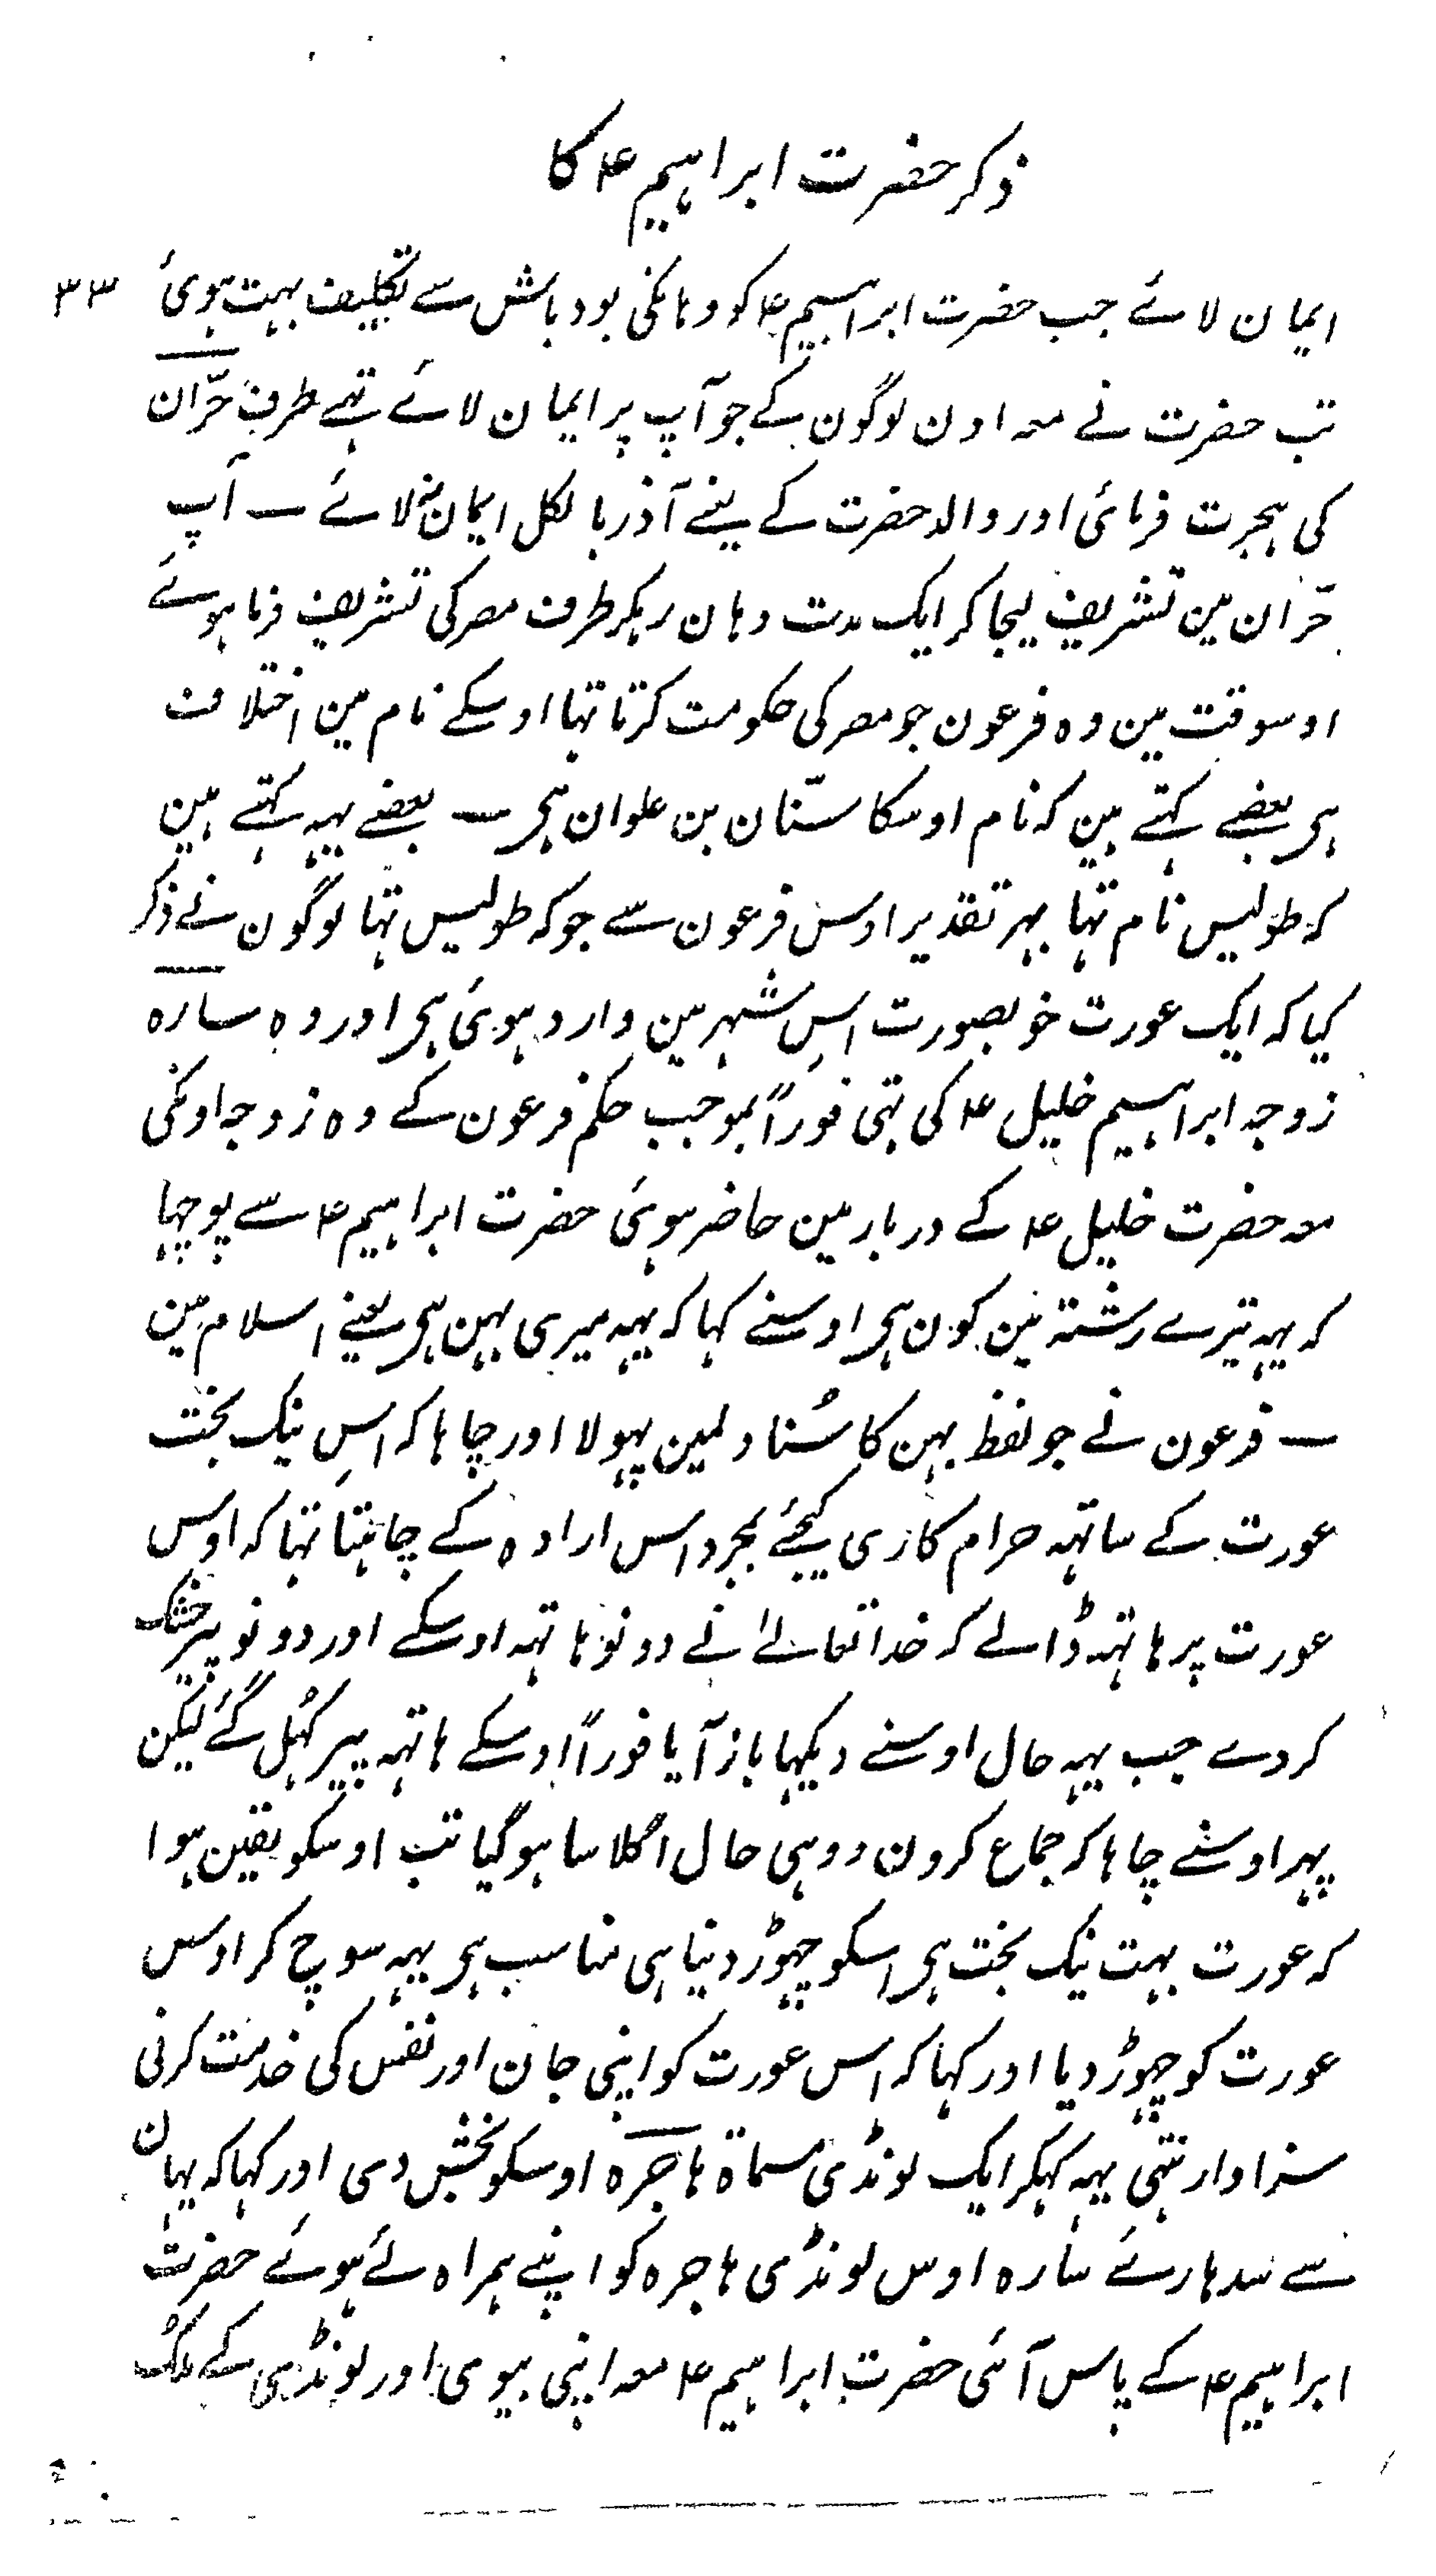 ذکر حضرت ابراہیم ؑ کا
۳۳
ایمان لائے جب حضرت ابراہیم ؑ کو وہانکی بودباش سے تکلیف بہت ہوئی
تب حضرت نے معہ اون لوگون کے جو آپ پر ایمان لائے تہے طرف حرّان
کی ہجرت فرمائی اور والد حضرت کے یعنے آذر بالکل ایمان نہ لائے ـ آپ
حرّان مین تشریف لیجا کر ایک مدت وہان رہکر طرف مصر کی تشریف فرما ہوئے
اوسوقت مین وہ فرعون جو مصر کی حکومت کرتا تہا اوسکے نام مین اختلاف
ہی بعضے کہتے ہین کہ نام اوسکا سنّان بن علوان ہی ـ بعضے یہہ کہتے ہین
کہ طولیس نام تہا بہر تقدیر اوس فرعون سے جو کہ طولیس تہا لوگون نے ذکر
کیا کہ ایک عورت خوبصورت اسِ شہر مین وارد ہوئی ہی اور وہ سارہ
زوجہ ابراہیم خلیل ؑ کی تہی فوراً بموجب حکم فرعون کے وہ زوجہ اونکی
معہ حضرت خلیل ؑ کے دربار مین حاضر ہوئی حضرت ابراہیم ؑ سے پوچہا
کہ یہہ تیرے رشتہ مین کون ہی اوسنے کہا کہ یہہ میری بہن ہی یعنے اسلام مین
ـ فرعون نے جو لفظ بہن کا سُنا دلمین پہولا اور چاہا کہ اسِ نیک بخت
عورت کے ساتہہ حرام کاری کیجئے بمجرد اس ارادہ کے چاہتا تہا کہ اوس
عورت پر ہاتہہ ڈالے کہ خدا تعالےٰ نے دونو ہاتہہ اوسکے اور دونو پیر خشک
کردے جب یہہ حال اوسنے دیکہا باز آیا فوراً اوسکے ہاتہہ پیر کہُل گئے لیکن
پہر اوسنے چاہا کہ جماع کرون ووہی حال اگلا سا ہوگیا تب اوسکو یقین ہوا
کہ عورت بہت نیک بخت ہی اسکو چہوڑ دینا ہی مناسب ہی یہہ سوچ کر اوس
عورت کو چہوڑ دیا اور کہا کہ اس عورت کو اپنی جان اور نفس کی خدمت کرنی
سزاوار نتہی یہہ کہکر ایک لونڈی مسماة ہاجرہ اوسکو بخش دی اور کہا کہ یہان
سے سدہارئے سارہ اوس لونڈی ہاجرہ کو اپنے ہمراہ لئے ہوئے حضرت
ابراہیم ؑ کے پاس آئی حضرت ابراہیم ؑ معہ اپنی بیوی اور لونڈی کے ملک